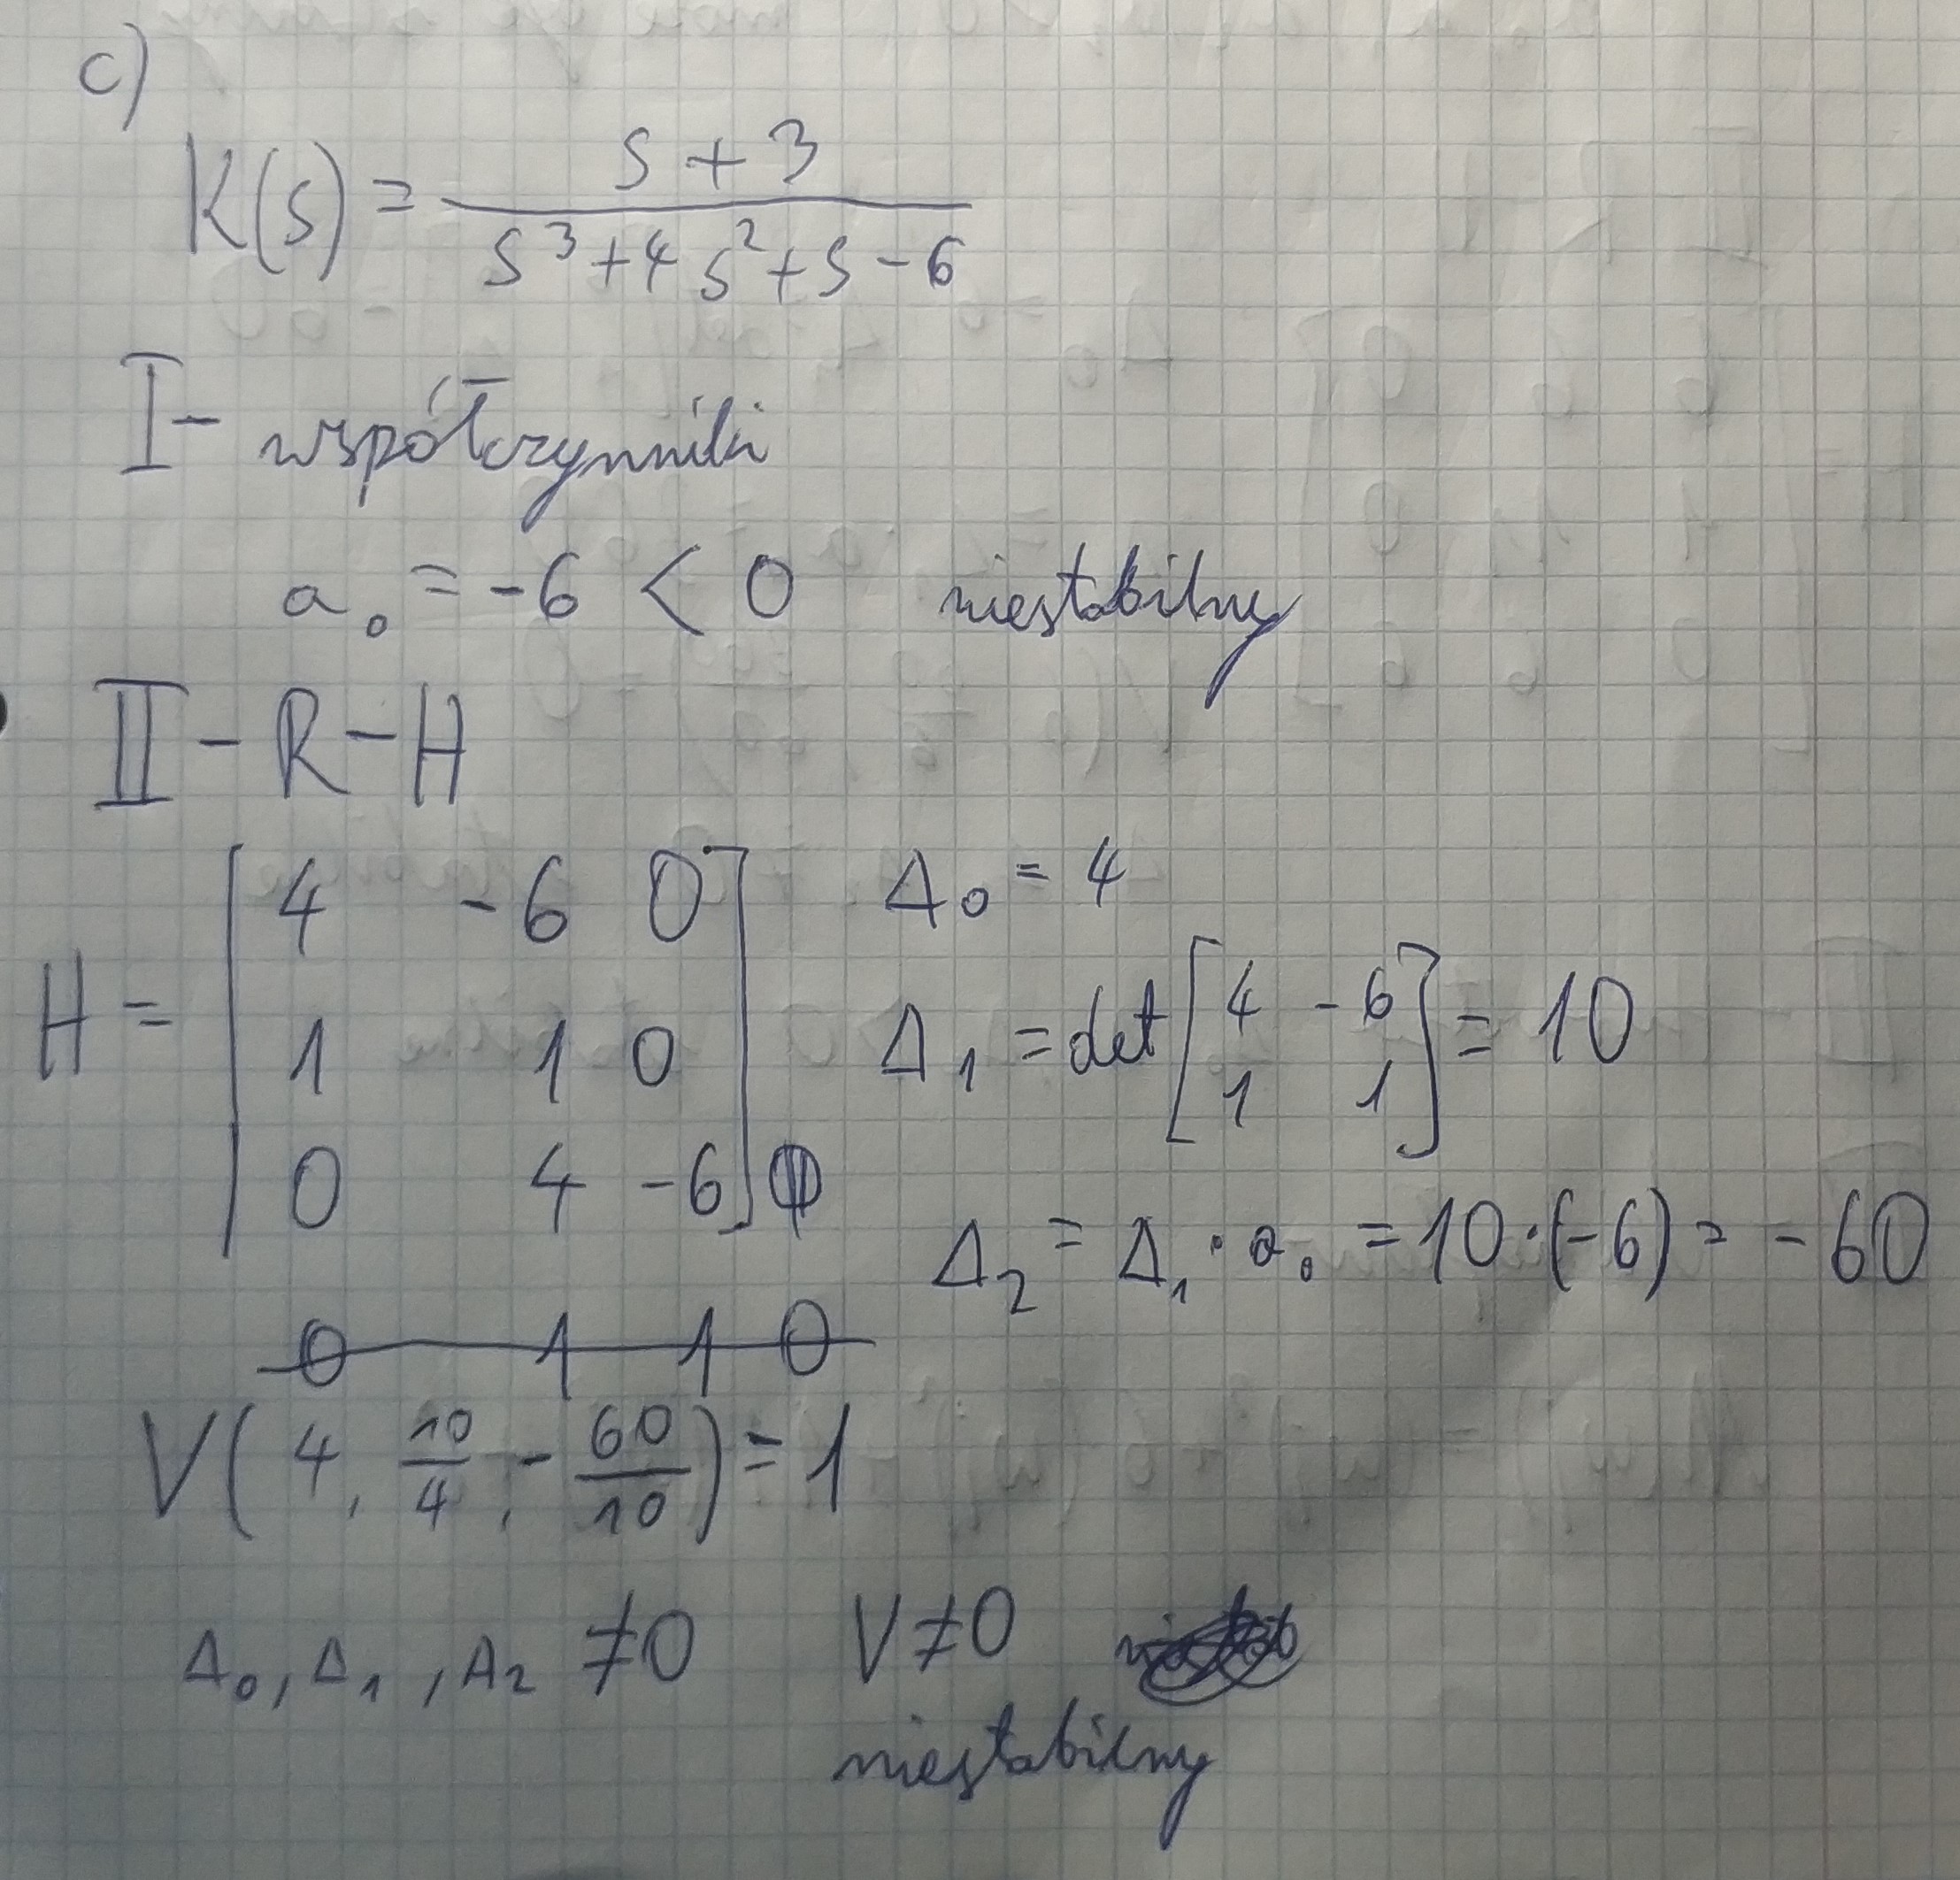 c)
K(s) = \frac{s + 3}{s^3 + 4s^2 + s - 6}
I - współczynniki
a_0 = -6 < 0 niestabilny
II - R - H
H = \begin{bmatrix} 4 & -6 & 0 \\ 1 & 1 & 0 \\ 0 & 4 & -6 \end{bmatrix}
Δ_0 = 4
Δ_1 = det \begin{bmatrix} 4 & -6 \\ 1 & 1 \end{bmatrix} = 10
Δ_2 = Δ_1 · a_0 = 10 · (-6) = -60
0 1 1 0
V(4, \frac{10}{4}, -\frac{60}{10}) = 1
Δ_0, Δ_1, Δ_2 ≠ 0 V ≠ 0
niestabilny